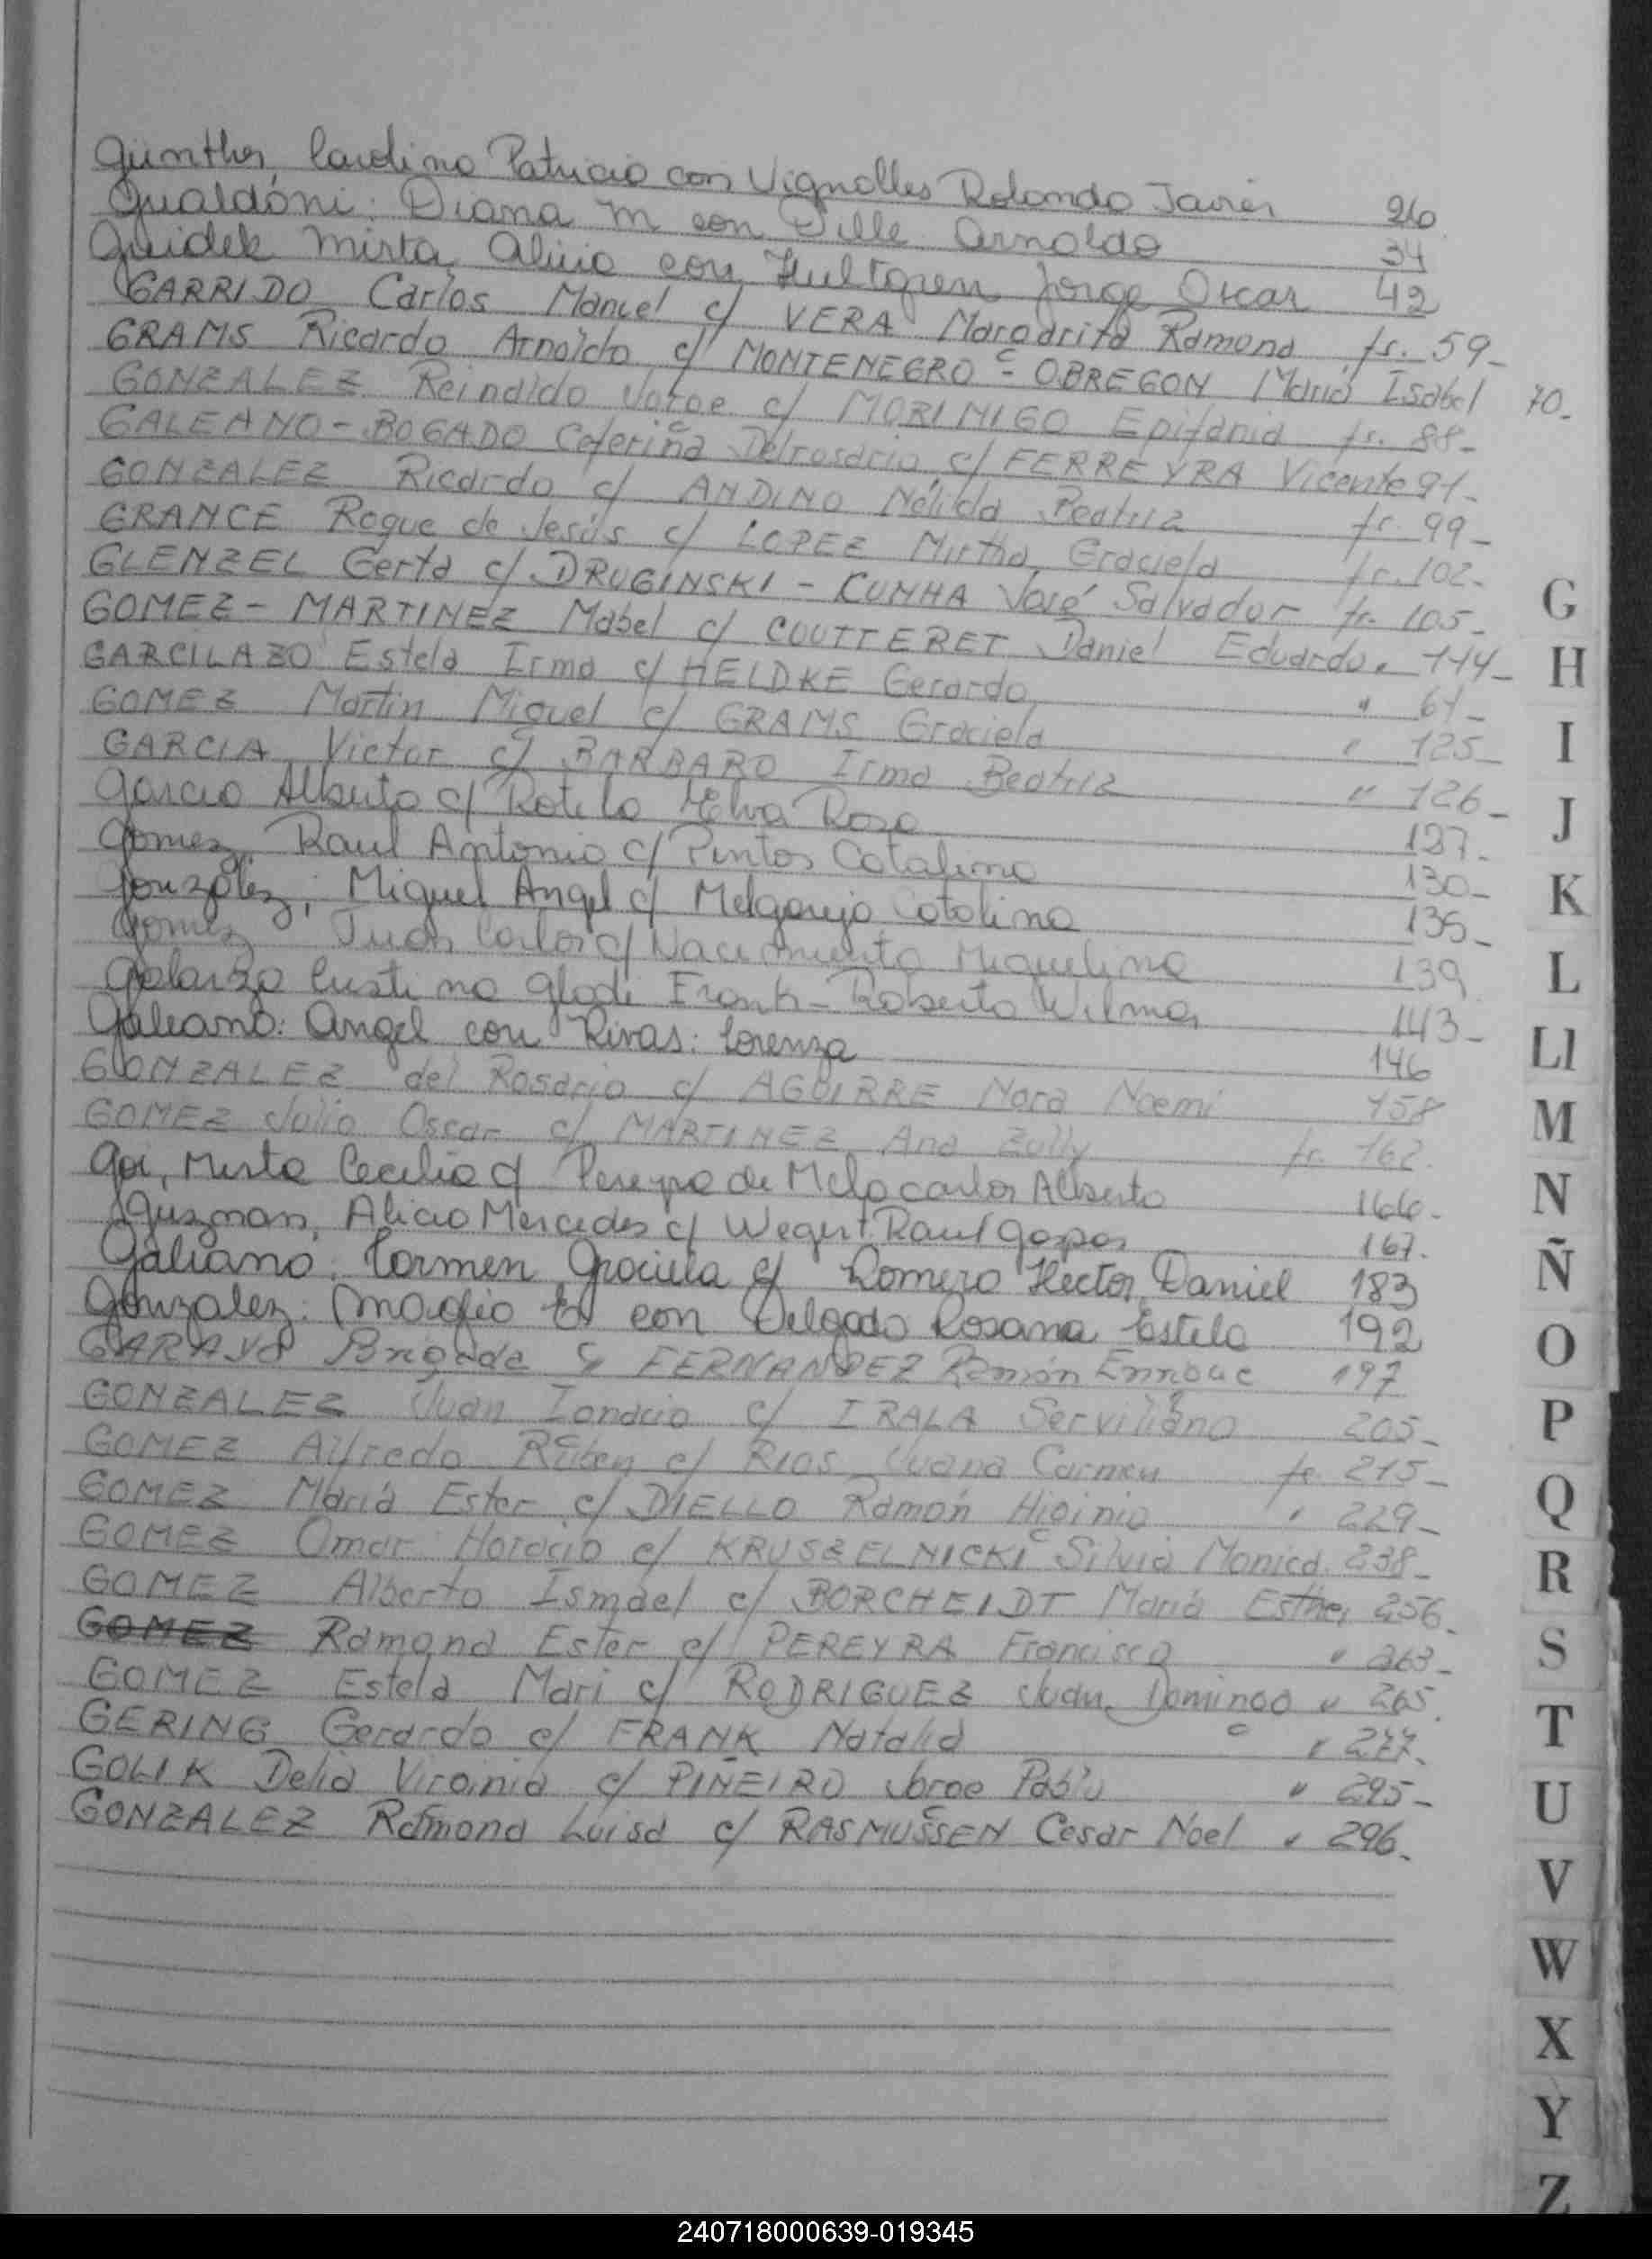 Günther, Carolina Patricia con Vignolles Rolando Javier 26
Gualdóni: Diana M con Dille Arnoldo 34
Guidek Mirta Alicia con Hultgren Jorge Oscar 42
GARRIDO Carlos Manuel c/ VERA Margarita Ramona fs. 59-
GRAMS Ricardo Arnoldo c/ MONTENEGRO - OBREGON María Isabel 70-
GONZALEZ Reinaldo Jorge c/ MORINIGO Epifania fs. 88-
GALEANO - BOGADO Ceferina Delrosario c/ FERREYRA Vicente 91-
GONZALEZ Ricardo c/ ANDINO Nélida Beatriz fs. 99-
GRANCE Roque de Jesús c/ LOPEZ Mirtha Graciela fs. 102-
GLENZEL Gerta c/ DRUGINSKI - CUNHA José Salvador fs. 105-
GOMEZ - MARTINEZ Mabel c/ COUTTERET Daniel Eduardo. 114-
GARCILAZO Estela Irma c/ HELDKE Gerardo " 61-
GOMEZ Martin Miguel c/ GRAMS Graciela " 125-
GARCIA Victor c/ BARBARO Irma Beatriz " 126-
Garcia Alberto c/ Rotela Elva Rosa 127-
Gomez Raul Antonio c/ Pintos Catalina 130-
Gonzalez; Miguel Angel c/ Melgarejo Catalina 135-
Gomez Juan Carlos c/ Nacimiento Miguelina 139
Galarza Custina Frank - Roberto Wilmar 143-
Galeano: Angel con Rivas: Lorenza 146
GONZALEZ del Rosario c/ AGUIRRE Nora Noemi 158
GOMEZ Julio Oscar c/ MARTINEZ Ana Zully fs. 162.
Goi, Mirta Cecilia c/ Pereyra de Melo Carlos Alberto 166-
Guzman, Alicia Mercedes c/ Wegert Raul Gaspar 167.
Galiano: Carmen Graciela c/ Romero Hector Daniel 183
Gonzalez: con Delgado Rosana Estela 192
GARAYO Brigida c/ FERNANDEZ Ramón Enrique 197
GONZALEZ Juan Ignacio c/ IRALA Serviliana 205-
GOMEZ Alfredo Rúben c/ RIOS Juana Carmen fs. 215-
GOMEZ María Ester c/ DIELLO Ramón Higinio " 229-
GOMEZ Omar Horacio c/ KRUSZELNICKI Silvia Monica. 238-
GOMEZ Alberto Ismael c/ BORCHEIDT María Esther 256-
GOMEZ Ramona Ester c/ PEREYRA Francisco " 263-
GOMEZ Estela Mari c/ RODRIGUEZ Juan Domingo " 265.
GERING Gerardo c/ FRANK Natalia " 277-
GOLIK Delia Virginia c/ PIÑEIRO Jorge Pablo " 295-
GONZALEZ Ramona Luisa c/ RASMUSSEN Cesar Noel " 296-
G
H
I
J
K
L
Ll
M
N
Ñ
O
P
Q
R
S
T
U
V
W
X
Y
Z
240718000639-019345